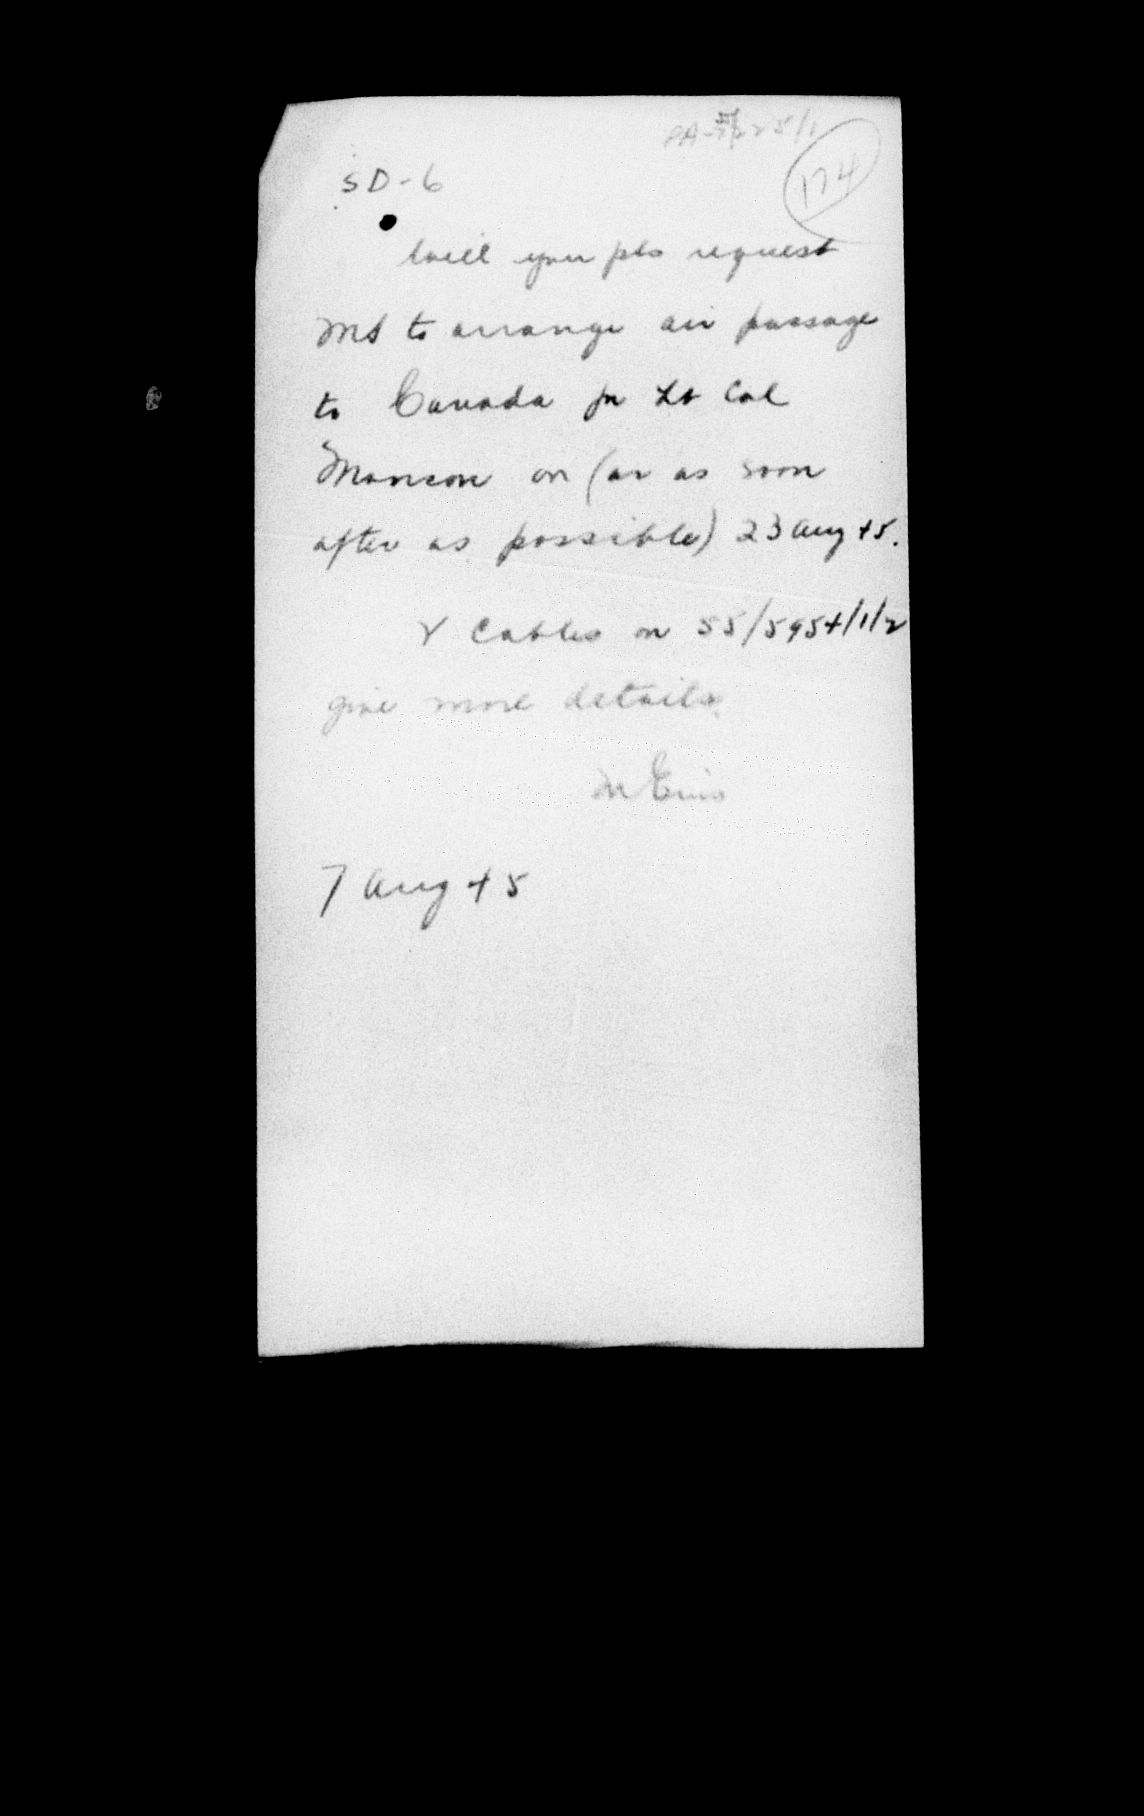 174
SD-6
Will you pls request
MS to arrange air passage
to Canada for Lt Col
Manson on (or as soon
after as possible) 23 Aug 45.
2 Cables on 55/5954/1/2
give more details.
7 Aug 45